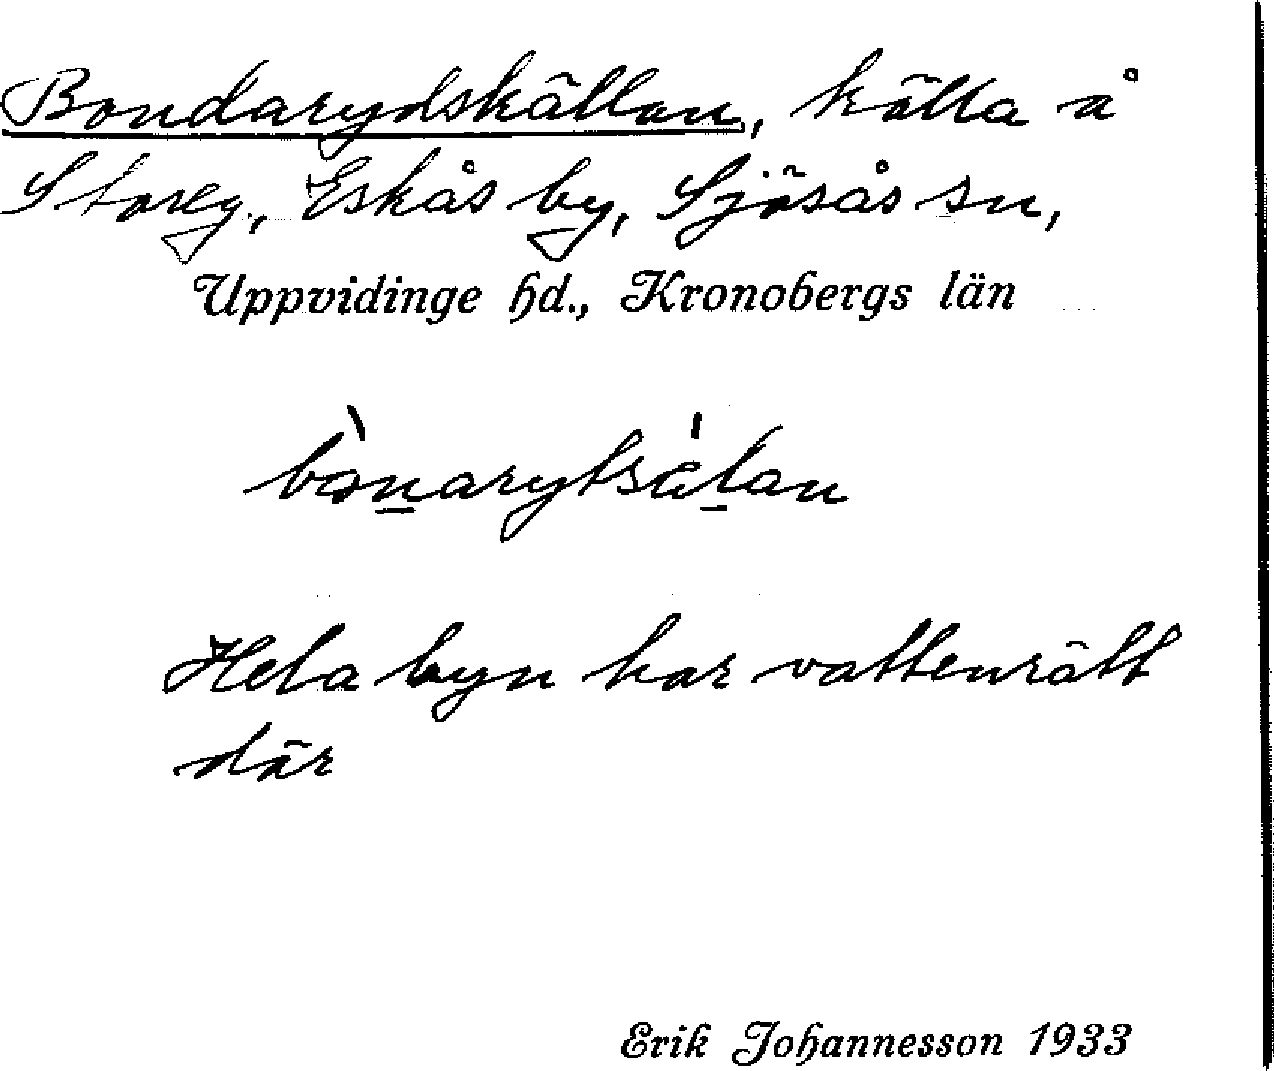 Bondarydskällan, källa å
Storeg., Eskås by, Sjösås sn,
Uppvidinge hd., Kronobergs län
Hela byn har vattenrätt
där
Erik Johannesson 1933